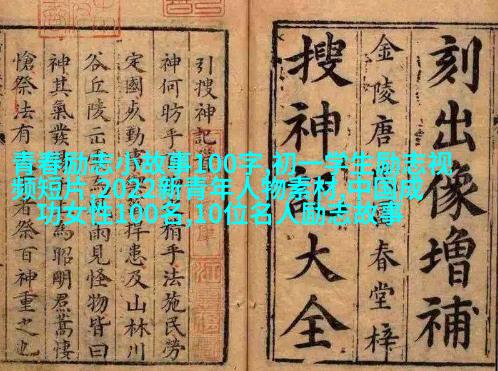 刻出像增補
金陵唐富春堂梓
搜神記大全
引搜神記
神何昉乎手法施民勞
定國捍患及山林川
谷丘陵示見怪物皆曰
神其氣發為昭明焄蒿悽
愴祭法有者祭百神重之也
青春励志小故事100字,初一学生励志视
频短片,2022新青年人物素材,中国成
功女性100名,10位名人励志故事